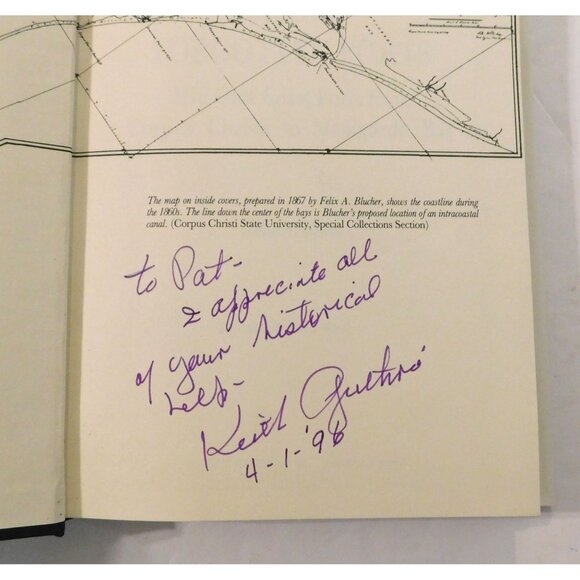 The map on inside covers, prepared in 1867 by Felix A. Blucher, shows the coastline during
the 1860s. The line down the center of the bays is Blucher's proposed location of an intracoastal
canal. (Corpus Christi State University, Special Collections Section)
to Pat-
I appreciate all
of your historical
help-
Keith Guthrie
4-1-'98